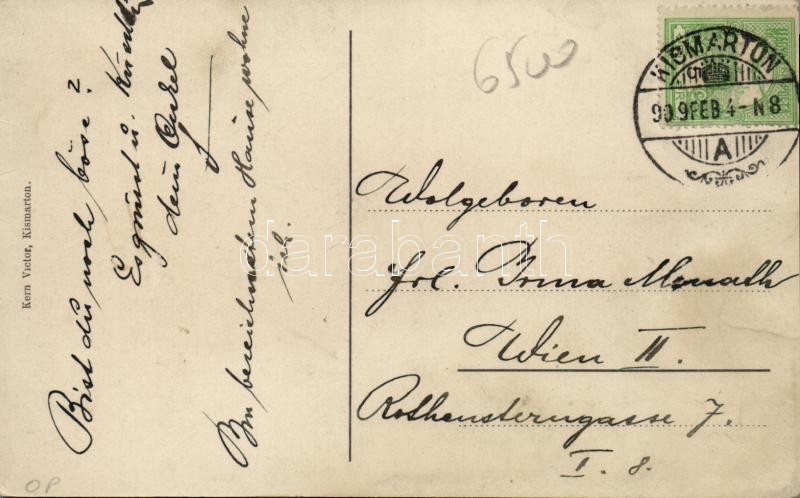 Bist du noch böse?
Es grüsst u. küsst
dein Onkel
Im bezeichneten Hause wohne
ich.
Kern Victor, Kismarton.
6500
KISMARTON
909 FEB 4-N8
A
Wolgeboren
Frl. Irma Monath
Wien II.
Rothensterngasse 7.
I. 8.
OP
darabanth